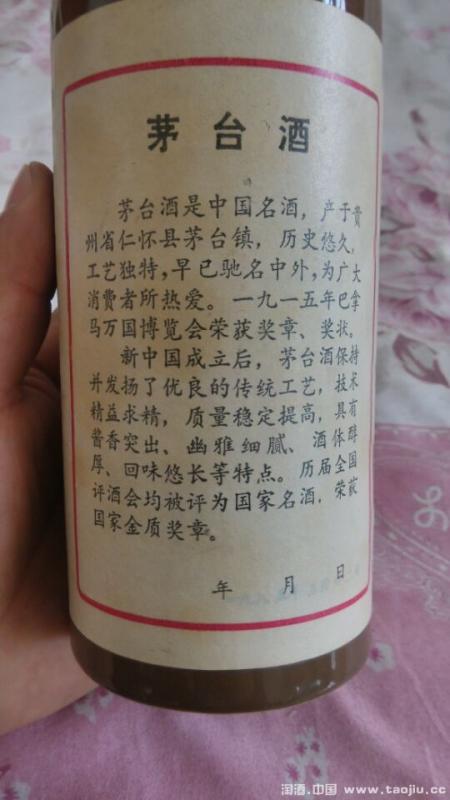 茅台酒
茅台酒是中国名酒，产于贵
州省仁怀县茅台镇，历史悠久，
工艺独特，早已驰名中外，为广大
消费者所热爱。一九一五年巴拿
马万国博览会荣获奖章、奖状。
新中国成立后，茅台酒保持
并发扬了优良的传统工艺，技术
精益求精，质量稳定提高，具有
酱香突出、幽雅细腻、酒体醇
厚、回味悠长等特点。历届全国
评酒会均被评为国家名酒，荣获
国家金质奖章。
年 月 日
淘酒.中国 www.taojiu.cc